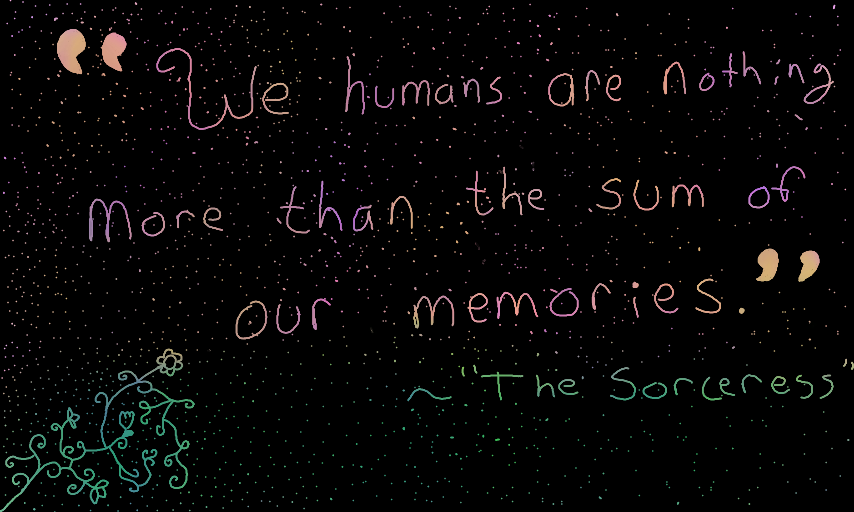 “We humans are nothing
more than the sum of
our memories.”
~ "The Sorceress"